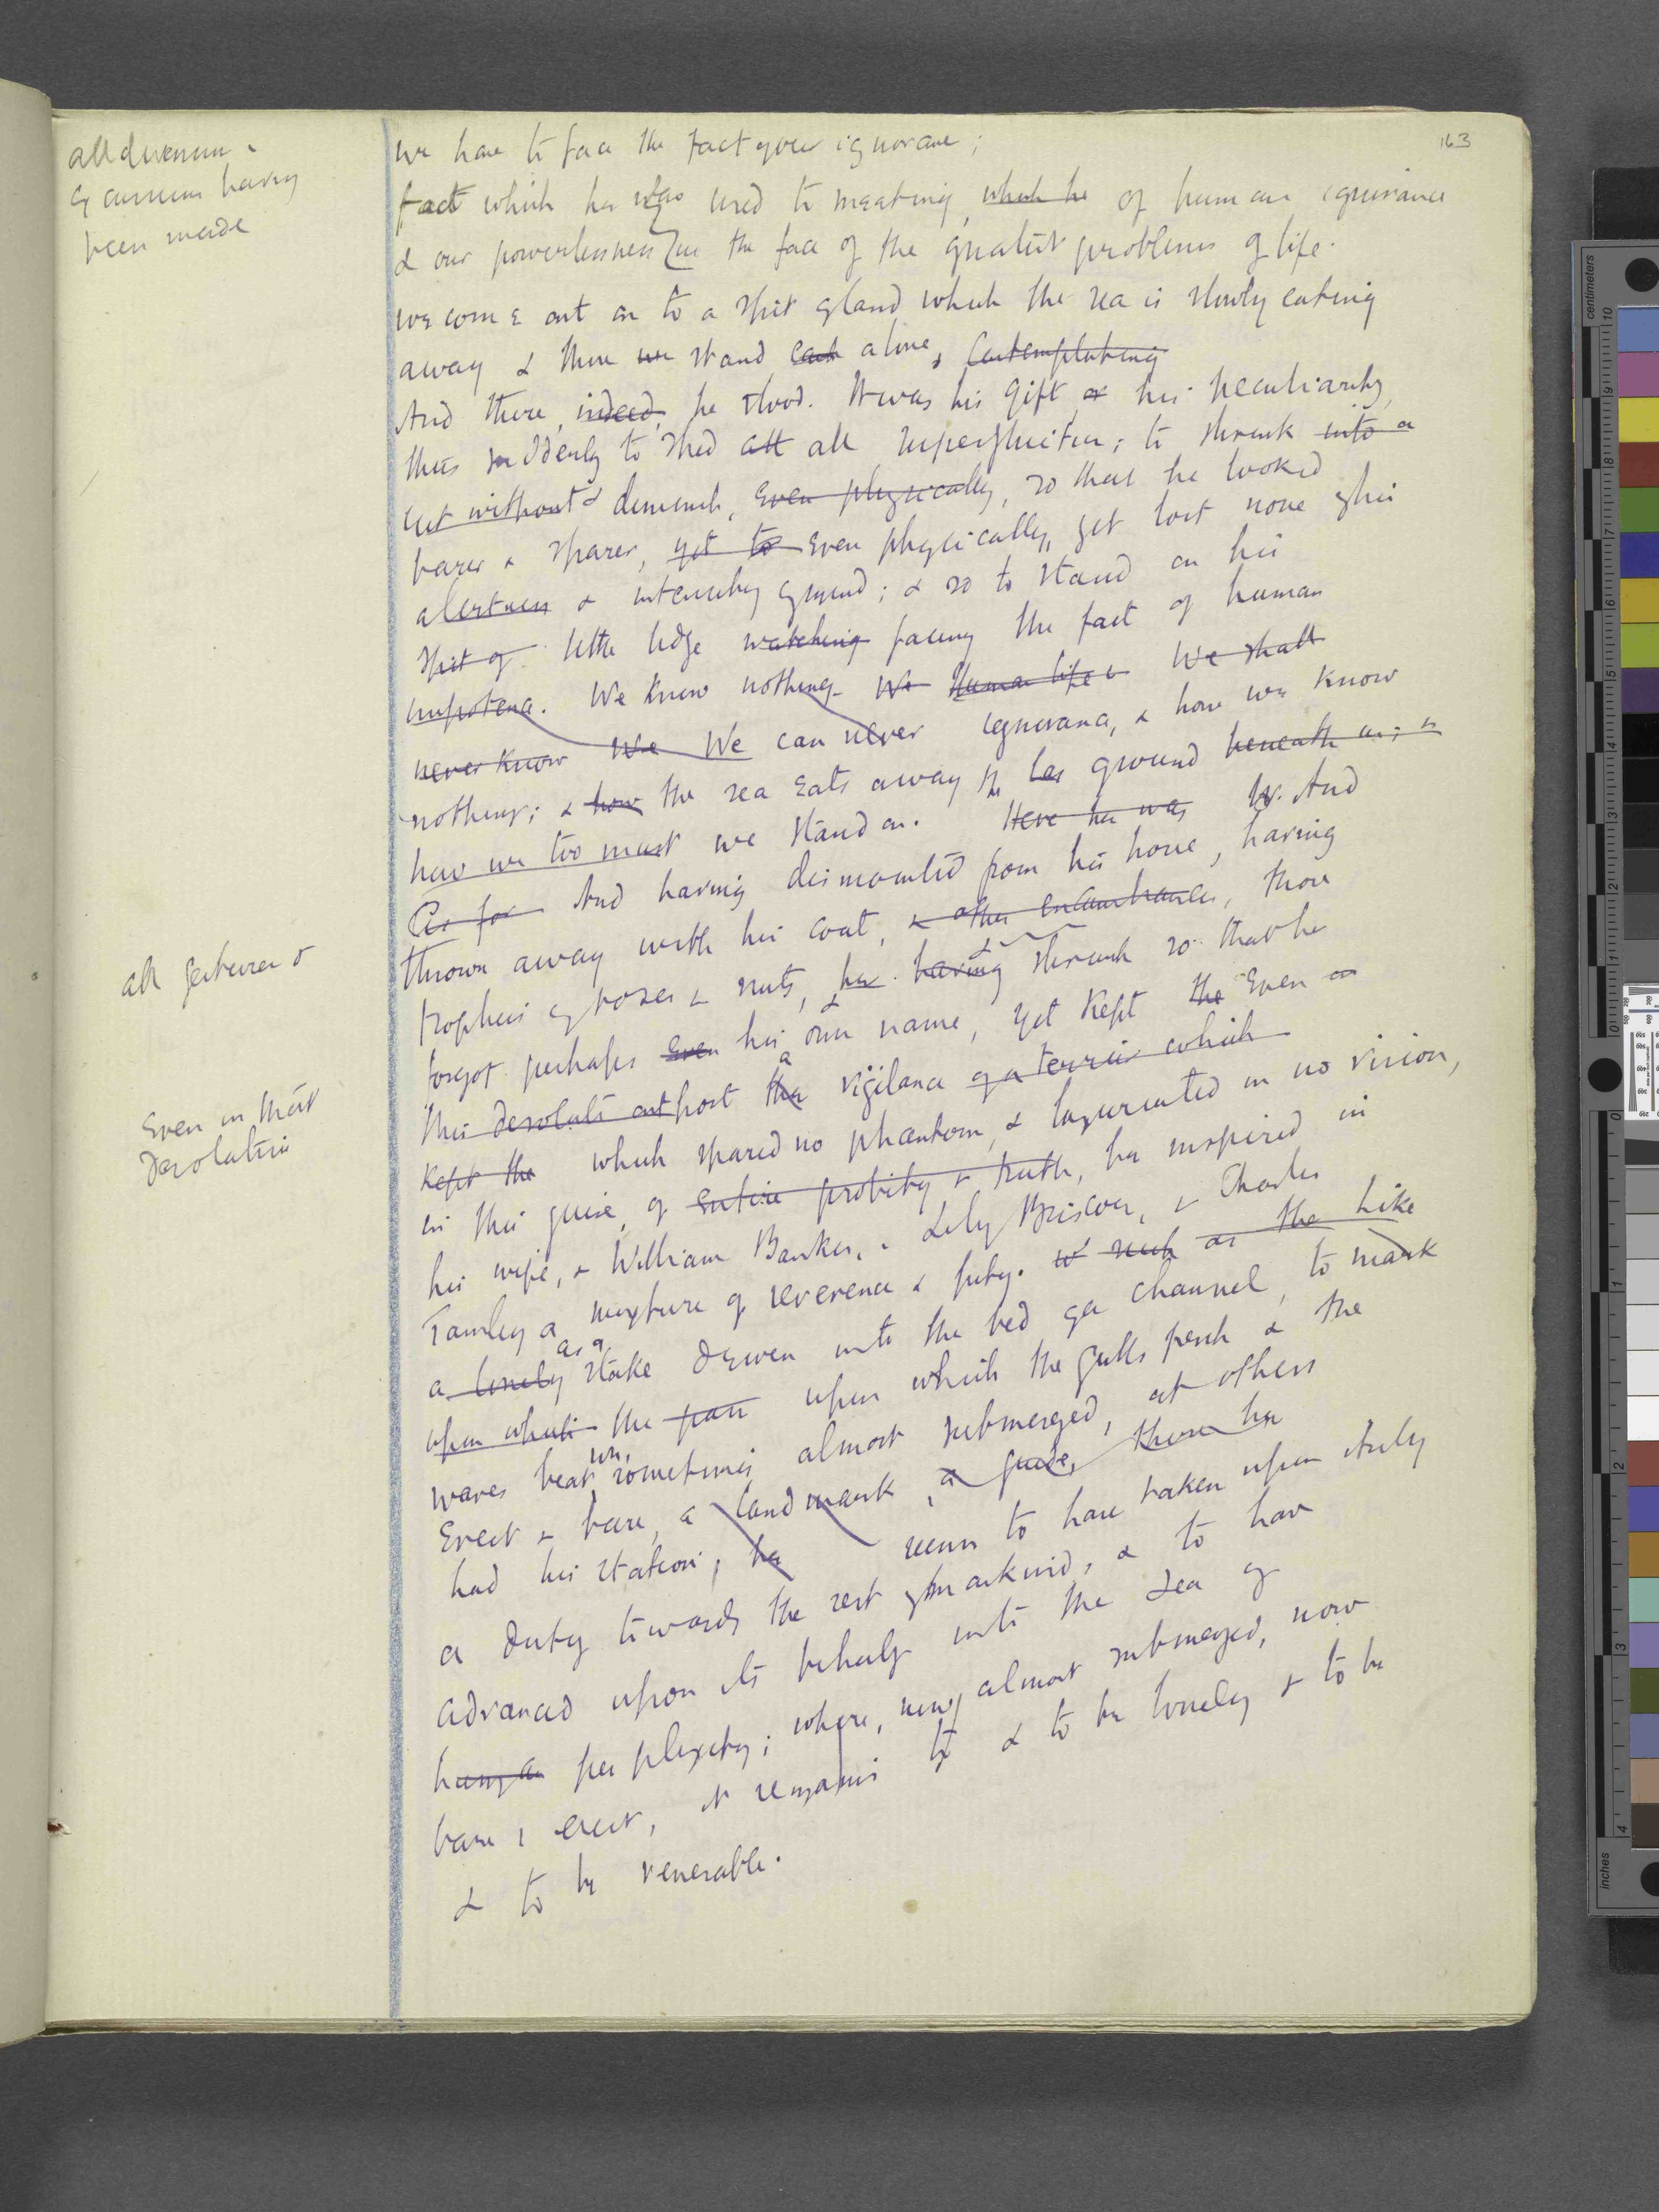 163
all diversion &
having
been made
we have to face the fact of our ignorance;
fact which he was used to meeting, which he of human ignorance
& our powerlessness in the face of the greatest problems of life.
we come out on to a spit of land which the sea is slowly eating
away & there we stand each alone, contemplating
And there, indeed, he stood. It was his gift, or his peculiarity,
thus suddenly to shed all all superfluities; to shrink into a
yet without & diminish, even physically, so that he looked
barer & sparer, yet to even physically, yet lost none of his
alertness & intensity of mind; & so to stand on his
spit of little ledge watching facing the fact of human
impotence. We know nothing. We Human life is We shall
never know We We can never ignorance, & how we know
nothing; & how the sea eats away the las ground beneath us; &
how we too must we stand on. Here he was And
As for And having dismounted from his horse, having
thrown away with his coat, & other encumbrances, those
all gestures &
trophies of roses & nuts, he & having shrunk so that he
forgot perhaps even his own name, yet kept the even on
this desolate outpost the a vigilance of a terrier which
Even in that
desolation
kept the which spared no phantom, & luxuriated in no vision,
in this guise, of entire probity & truth, he inspired in
his wife, & William Bankes, & Lily Briscoe, & Charles
Tansley a mixture of reverence & pity. such as the like
a lonely as a stake driven into the bed of a channel, to mark
upon which the upon which the gulls perch & the
waves beat, sometimes almost submerged, at others
Erect & bare, a landmark, a guide, there he
had his station, he seems to have taken upon itself
a duty towards the rest of mankind, & to have
advanced upon its behalf into the sea of
human perplexity; where, now almost submerged, now
bare & erect, it remains & to be lonely & to be
& to be venerable.